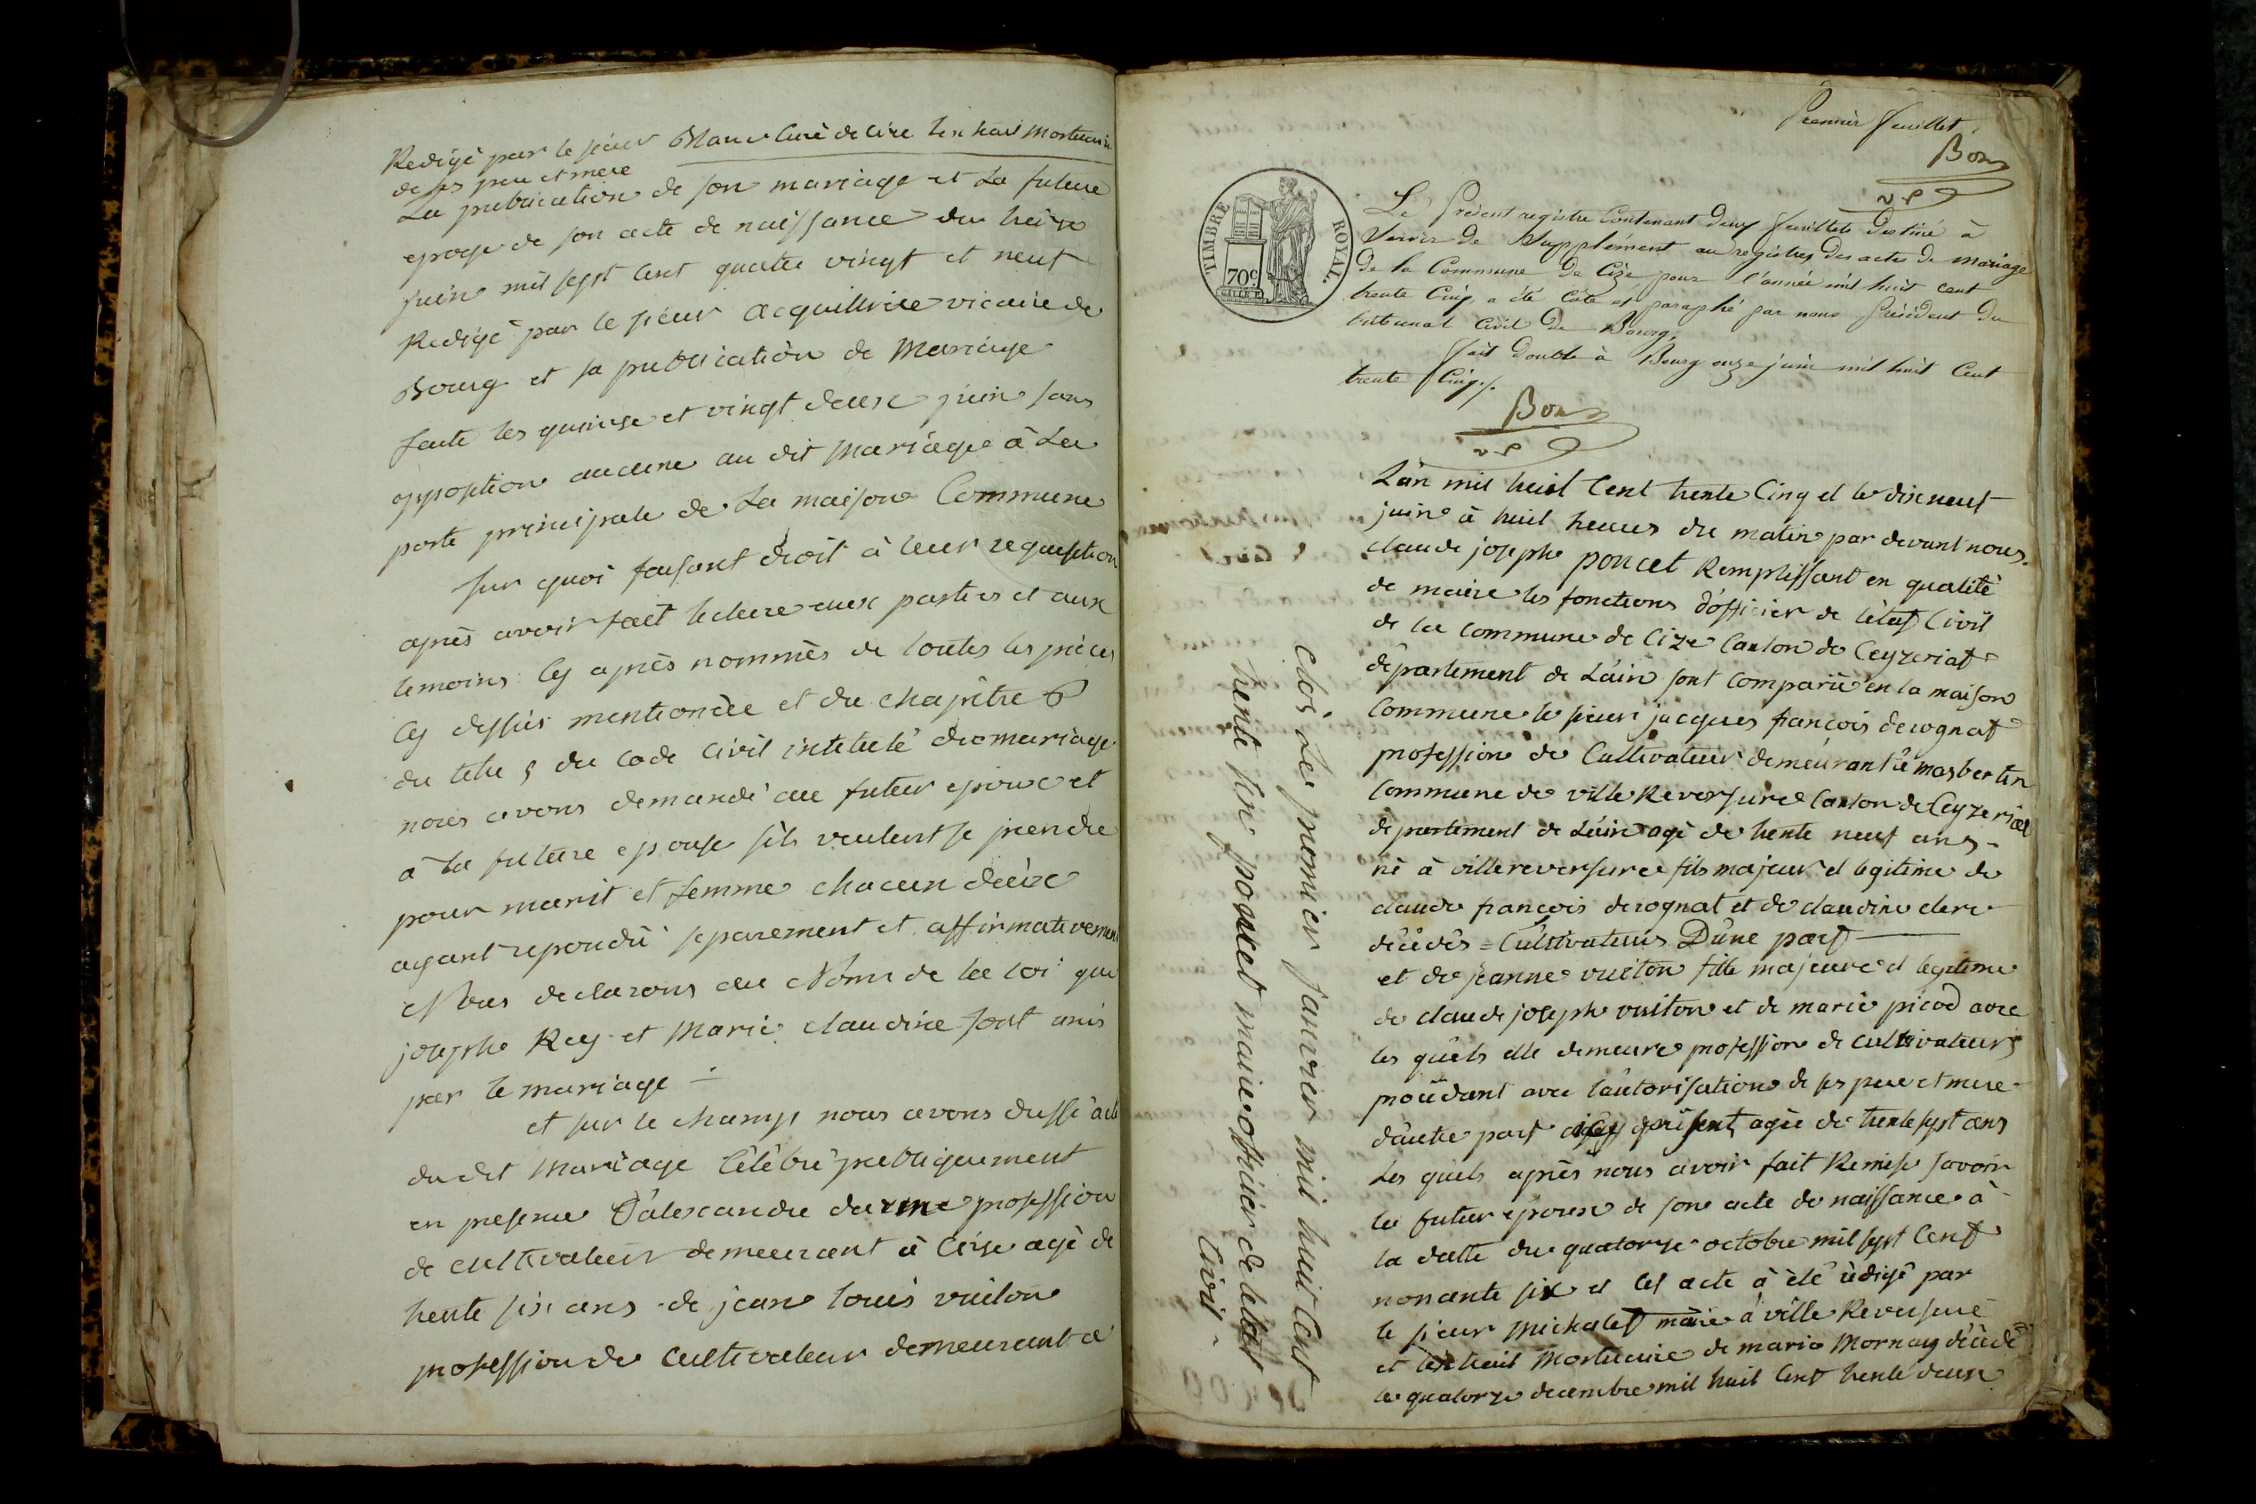 Redigé par le sieur Blanc Curé de Cize lextrait Mortuaire
de ses pere et mere
La publication de son mariage et La future
epoqe de son acte de naissance du treise
juin mil sept cent quatre vingt et neuf
Redigé par le sieur vicaire de
Bourg et sa publication de Mariage
faite les quinise et vingt deux juin sans
opposition aucune au dit mariage à La
porte principale de La maison Commune
sur quoi faisant droit à leur requisition
après avoir fait lecture aux parties et aux
temoins Cy après nommès de toutes les pièces
Cy dessus mentionèe et du chapître 6
du titre 5 du code Civil intitulé du mariage
nous avons demandé au futur epoux et
à la future epouse s'ils veulent se prendre
pour marit et femme chacun d'eux
ayant repondù separement et affirmativement
Nous declarons au Nom de la loi que
joseph Rey et Marie claudine sont unis
par le mariage —
et sur le champs nous avons dussé acte
du dit Mariage Célébré publiquement
en presence D'alexandre darme profession
de cultivateur demeurant à Cize agè de
trente six ans de jean louis vuiton
profession de Cultivateur demeurant à
Premier feuillet.
Bon
TIMBRE ROYAL.
70c
Le Présent registre Contenant deux feuillets destiné à
Servir de Supplément au registres des acte de mariage
de la Commune de Cize pour l'année mil huit cent
trente Cinq a été Côté et paraphé par nous Président du
tribunal Civil de Bourg,
fait double à Bourg onze juin mil huit Cent
trente Cinq./.
Bon
L'an mil huit Cent trente Cinq et le dix neuf
juin à huit heures du matin par devant nous
claude joseph poncet Remplissant en qualité
de maire les fonctions d'officier de l'ètat Civil
de la commune de Cize Canton de Ceyzeriat
département de L'ain sont comparù en la maison
Commune le sieur jacques francois derognat
profession de Cultivateur demeurant à masbertin
Commune de ville Reversure Canton de Ceyzeriat
departement de L'ain agè de trente neuf ans
né à villereversure fils majeur et legitime de
claude francois derognat et de claudine clerc
décèdés = Cultivateurs D'une part
et de jeanne vuiton fille majeure et legitime
de claude joseph vuiton et de marie picod avec
les quels elle demeure profession de cultivateurs
procèdant avec l'autorisation de ses pere et mere
d'autre part icy présent agée de trente sept ans
Les quels après nous avoir fait Remise savoir
le futur epoux de son acte de naissance à
la datte du quatorze octobre mil sept Cent
nonante six et Cet acte à èté rèdigé par
le sieur Michalet maire à ville Reversure
et lextrait Mortuaire de marie Mornay décèdé
le quatorze decembre mil huit Cent trente deux
Clos Le premier janvier mil huit Cent
trente six poncet maire officier de letat
Civil